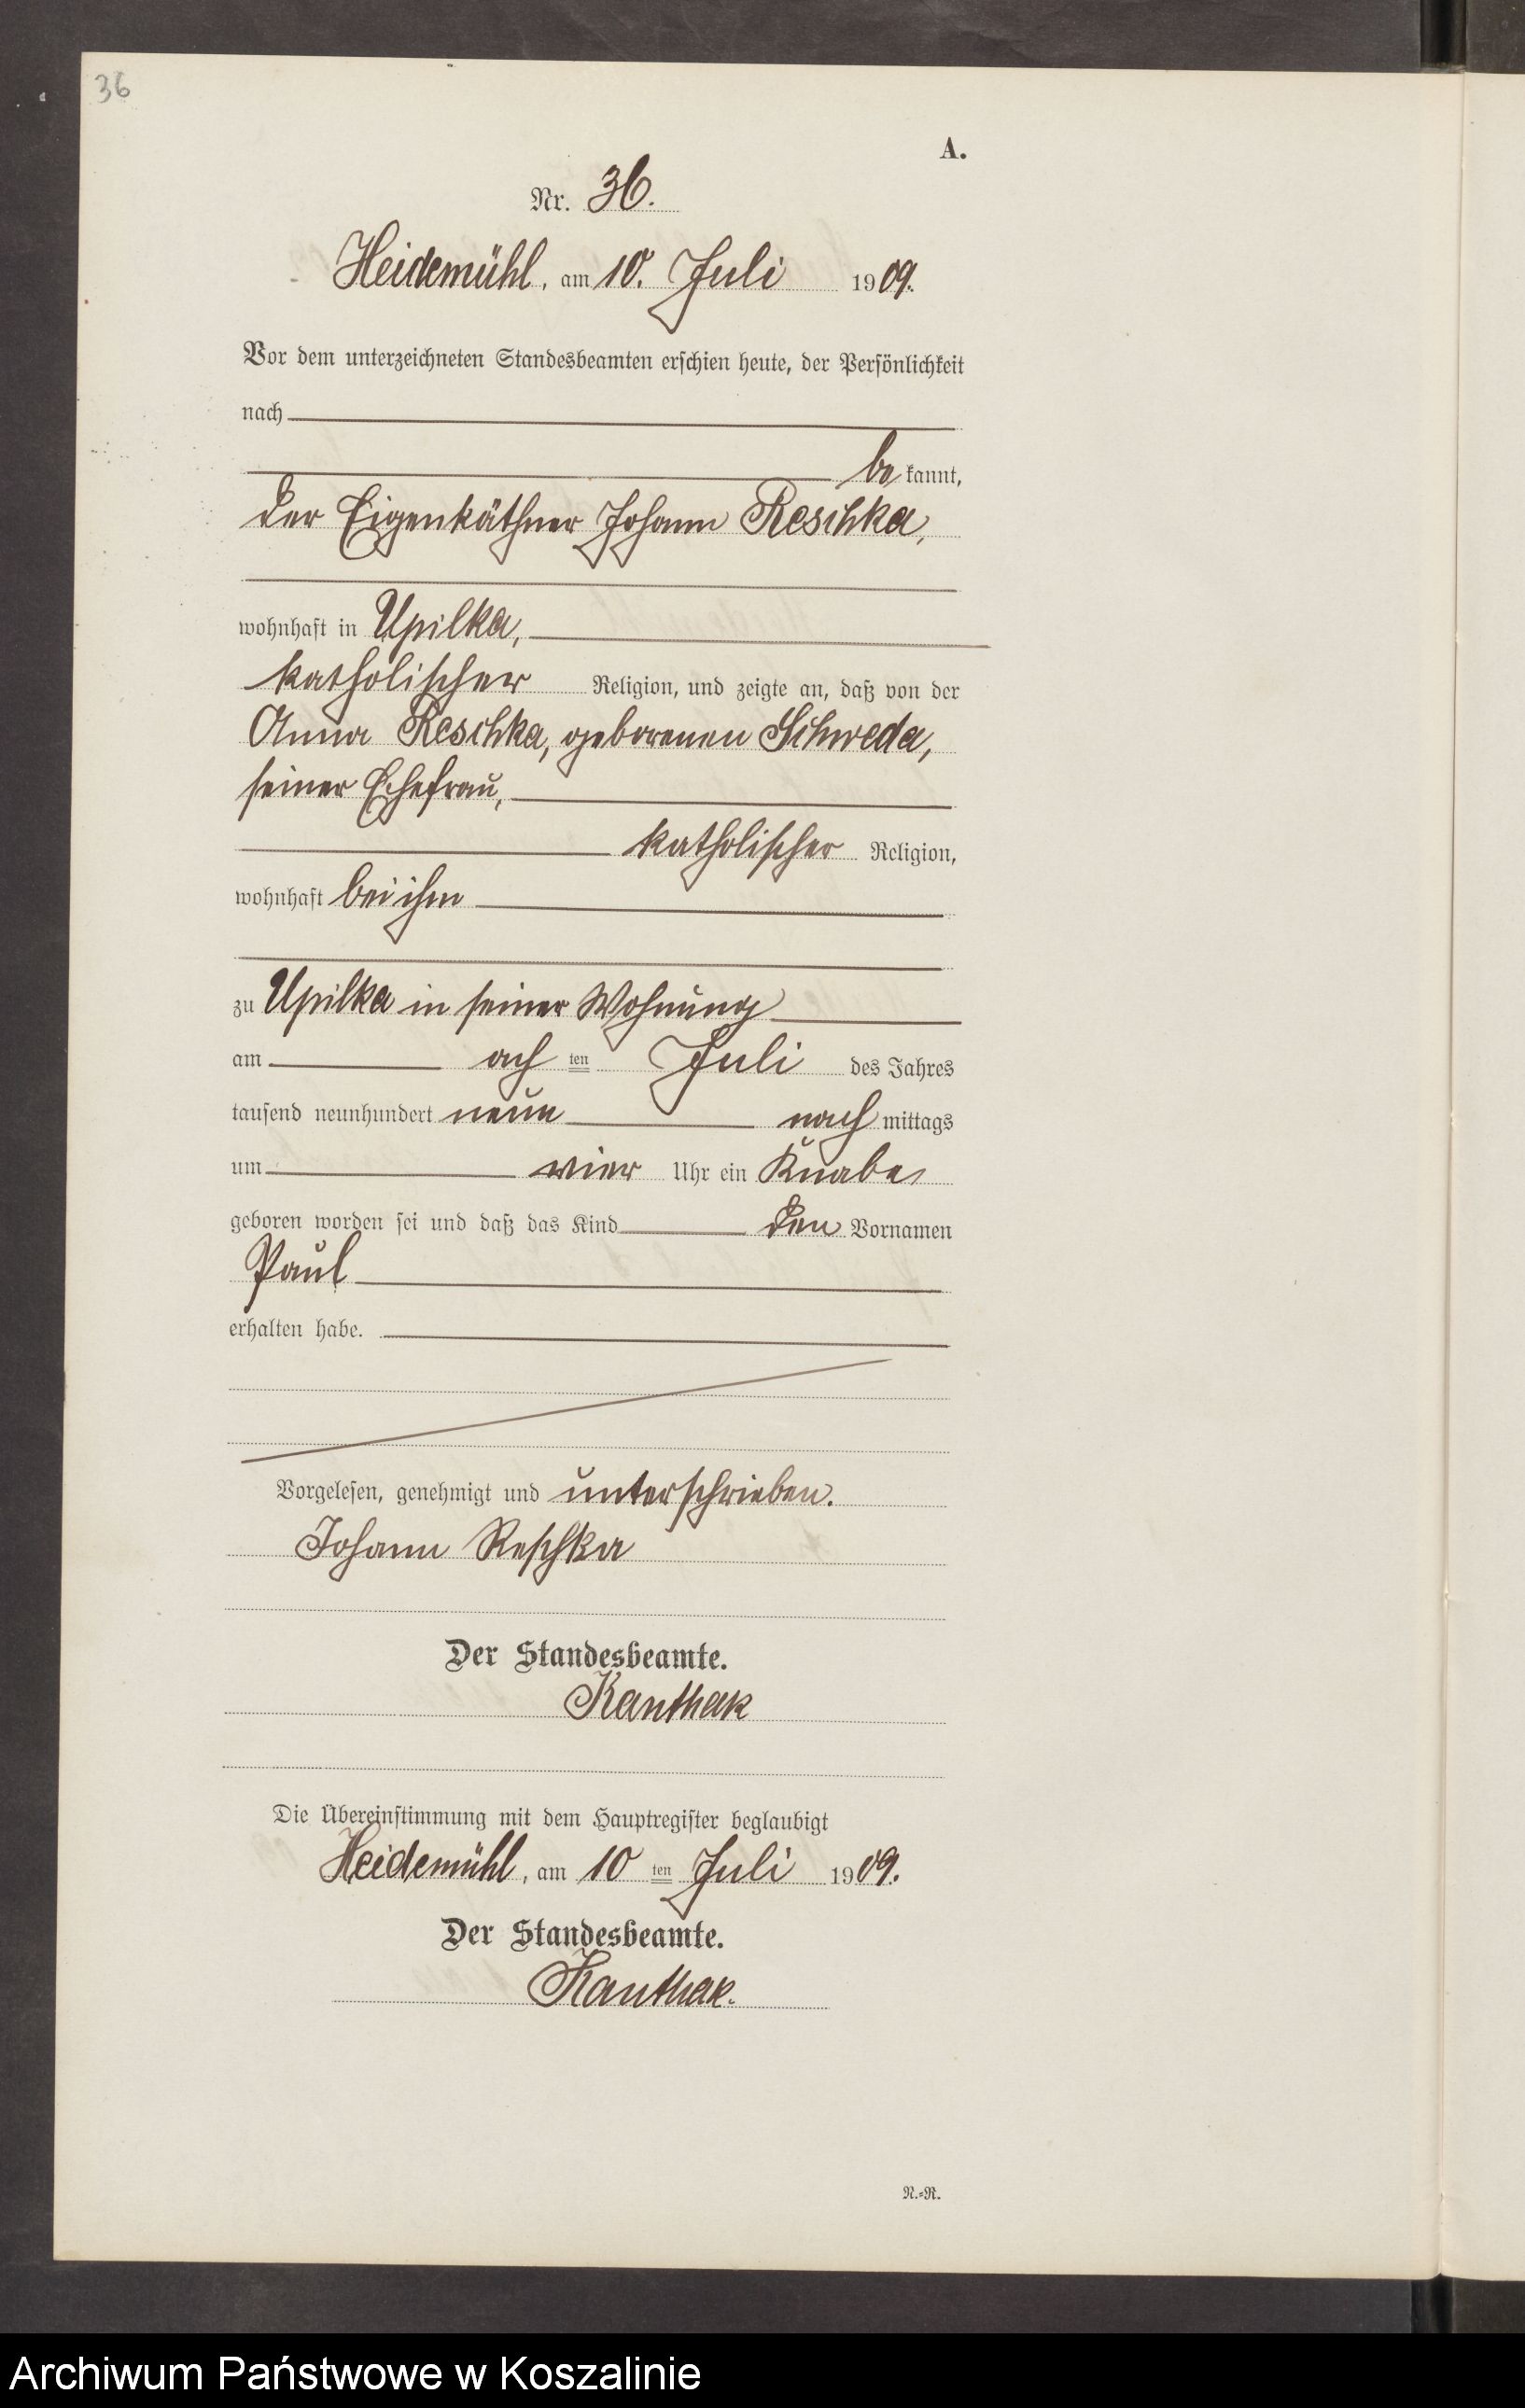 36
A.
Nr. 36.
Heidemühl, am 10. Juli 1909.
Vor dem unterzeichneten Standesbeamten erschien heute, der Persönlichkeit
nach
bekannt,
der Eigenkäthner Johann Reschka,
wohnhaft in Upilka,
katholischer Religion, und zeigte an, daß von der
Anna Reschka, geborenen Schweda,
seiner Ehefrau,
katholischer Religion,
wohnhaft bei ihm
zu Upilka in seiner Wohnung
am achten Juli des Jahres
tausend neunhundert neun nachmittags
um vier Uhr ein Knabe
geboren worden sei und daß das Kind den Vornamen
Paul
erhalten habe.
Vorgelesen, genehmigt und unterschrieben.
Johann Reschka
Der Standesbeamte.
Kanthak
Die Übereinstimmung mit dem Hauptregister beglaubigt
Heidemühl, am 10 ten Juli 1909.
Der Standesbeamte.
Kanthak.
N.=R.
Archiwum Państwowe w Koszalinie